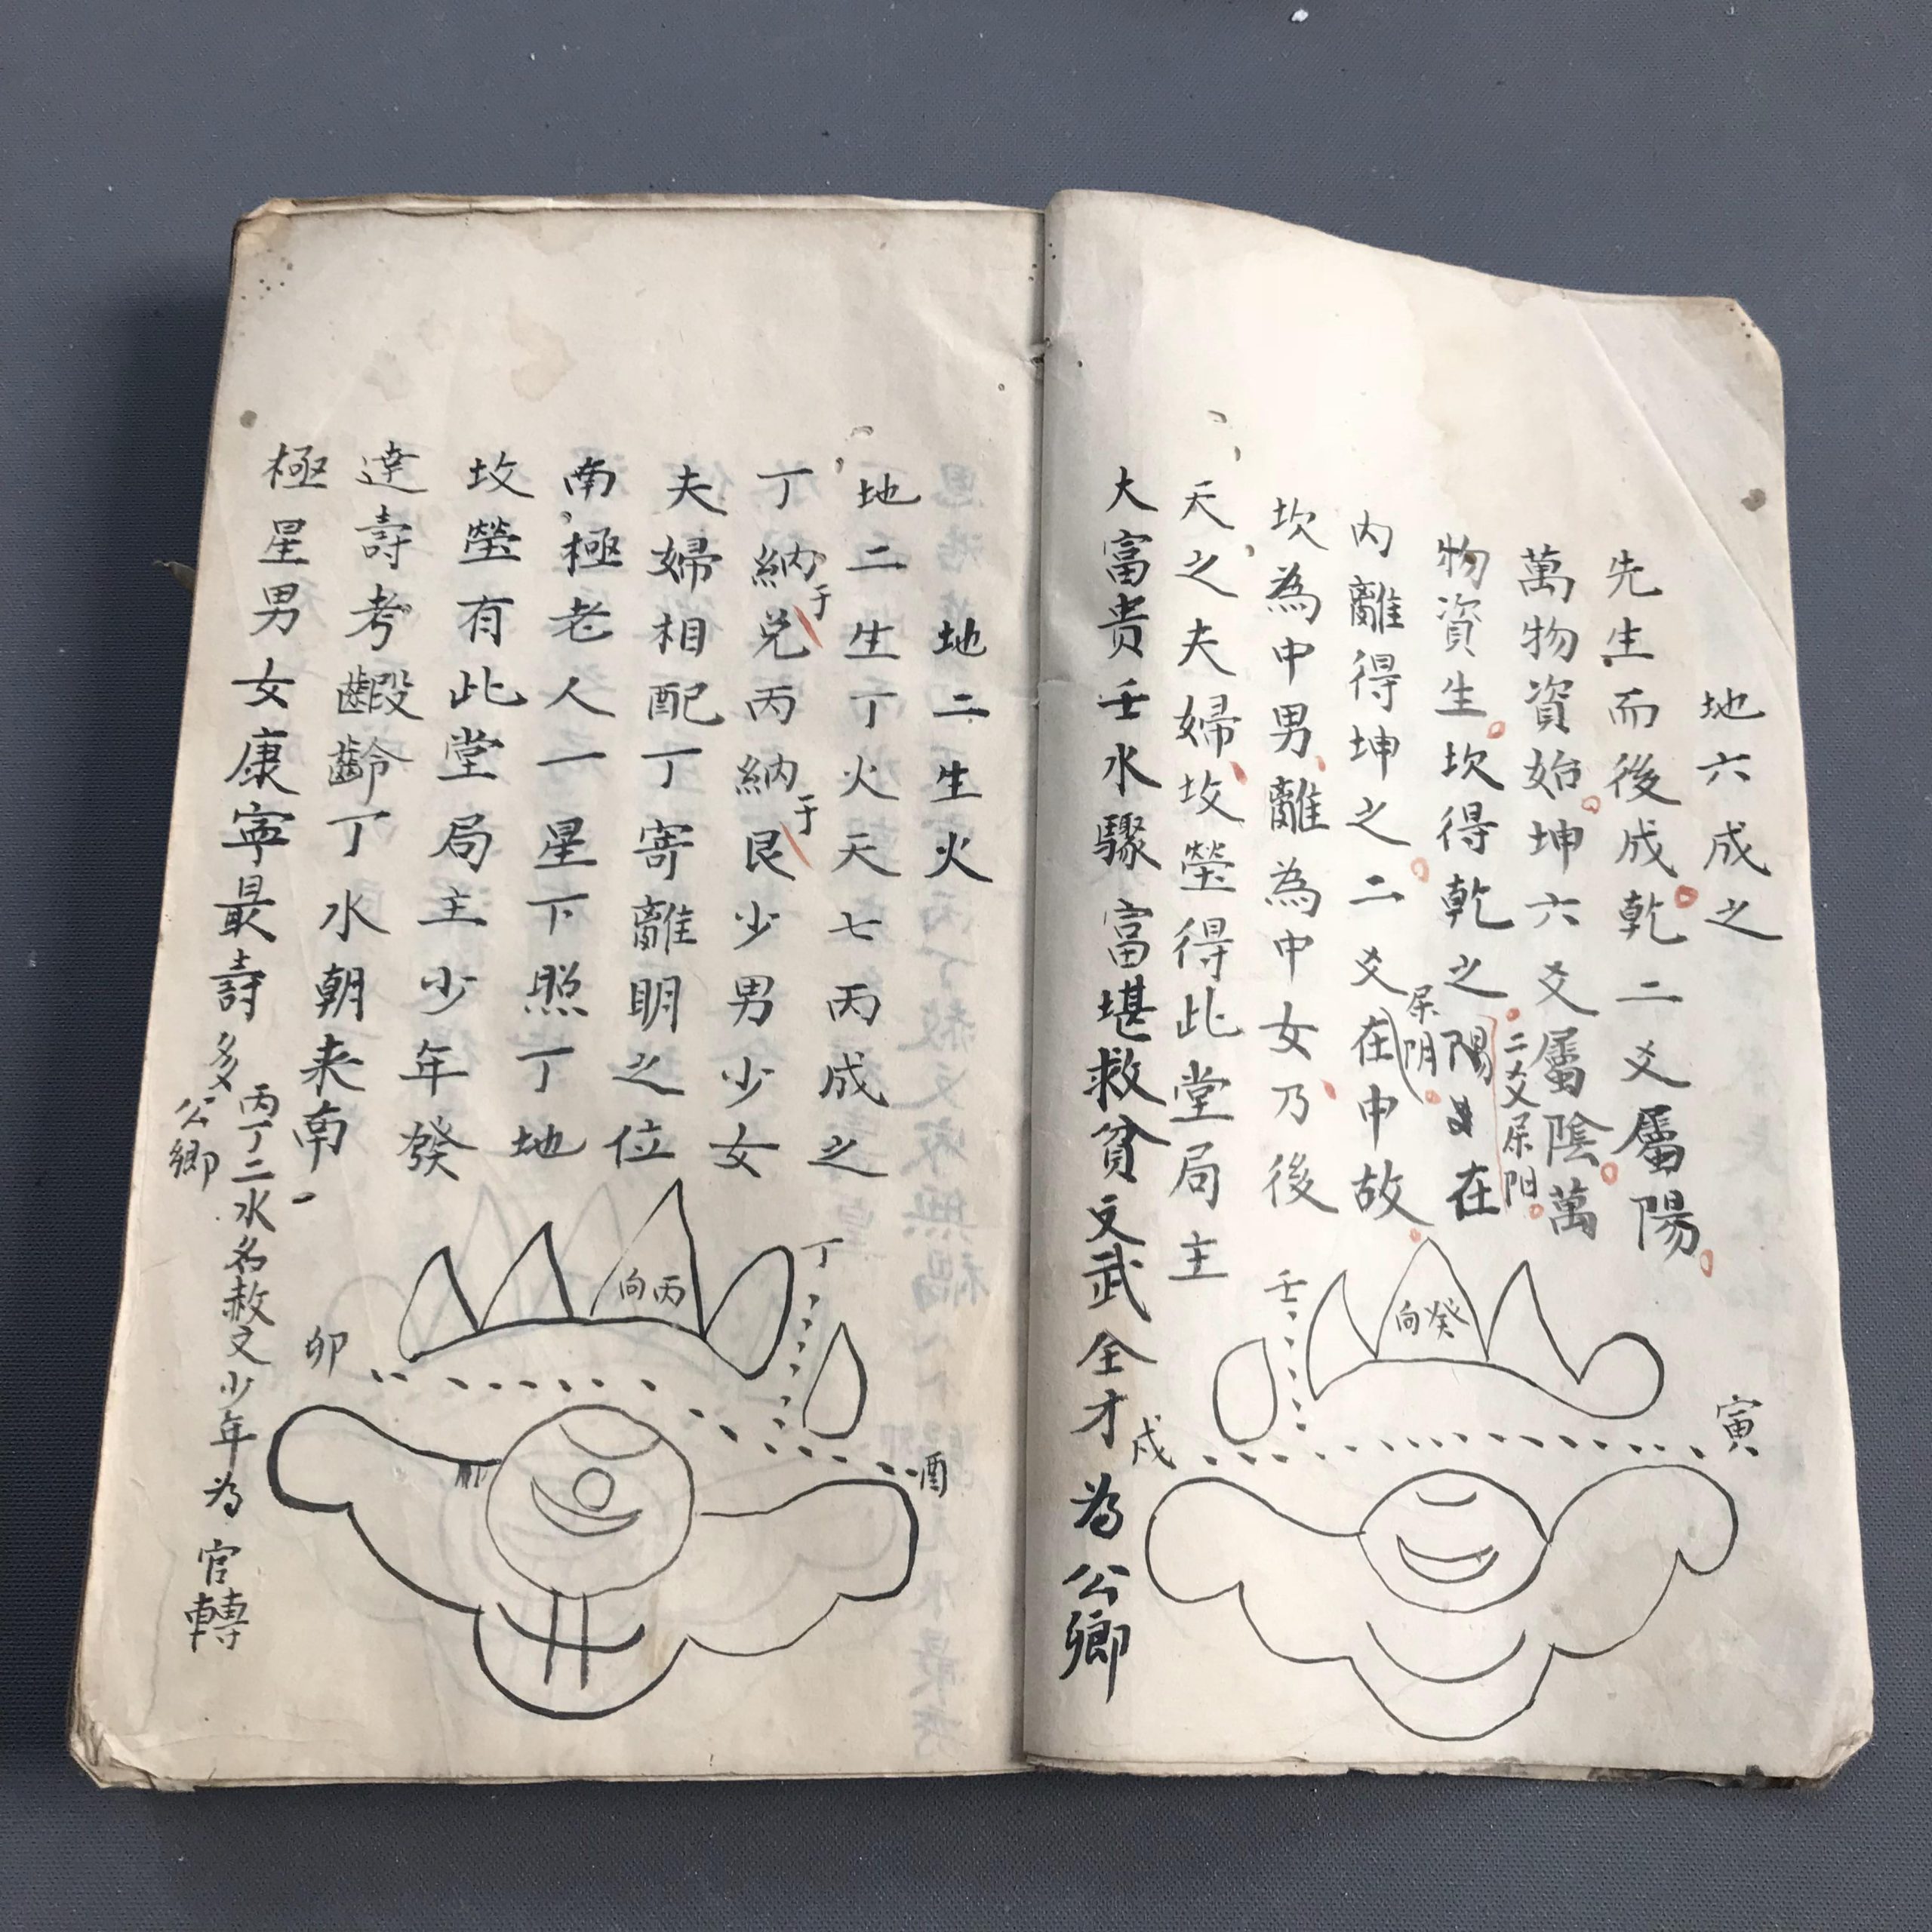 地六成之
先生而後成乾二爻屬陽
萬物資始坤六爻屬陰萬
物資生坎得乾之陽爻在
二爻屎阳
内離得坤之二爻在中故
屎阴
坎為中男離為中女乃後
天之夫婦坟塋得此堂局主
大富貴壬水驟富堪救貧文武全才為公卿
壬
向癸
戍
寅
地二生火
地二生丁火天七丙成之
丁納于兑丙納于艮少男少女
夫婦相配丁寄離明之位
南極老人一星下照丁地
坟塋有此堂局主少年發
達壽考齦齡丁水朝来南
極星男女康寕最壽多
丙丁二水名赦文少年為官轉
公卿
丁
向丙
卯
酉